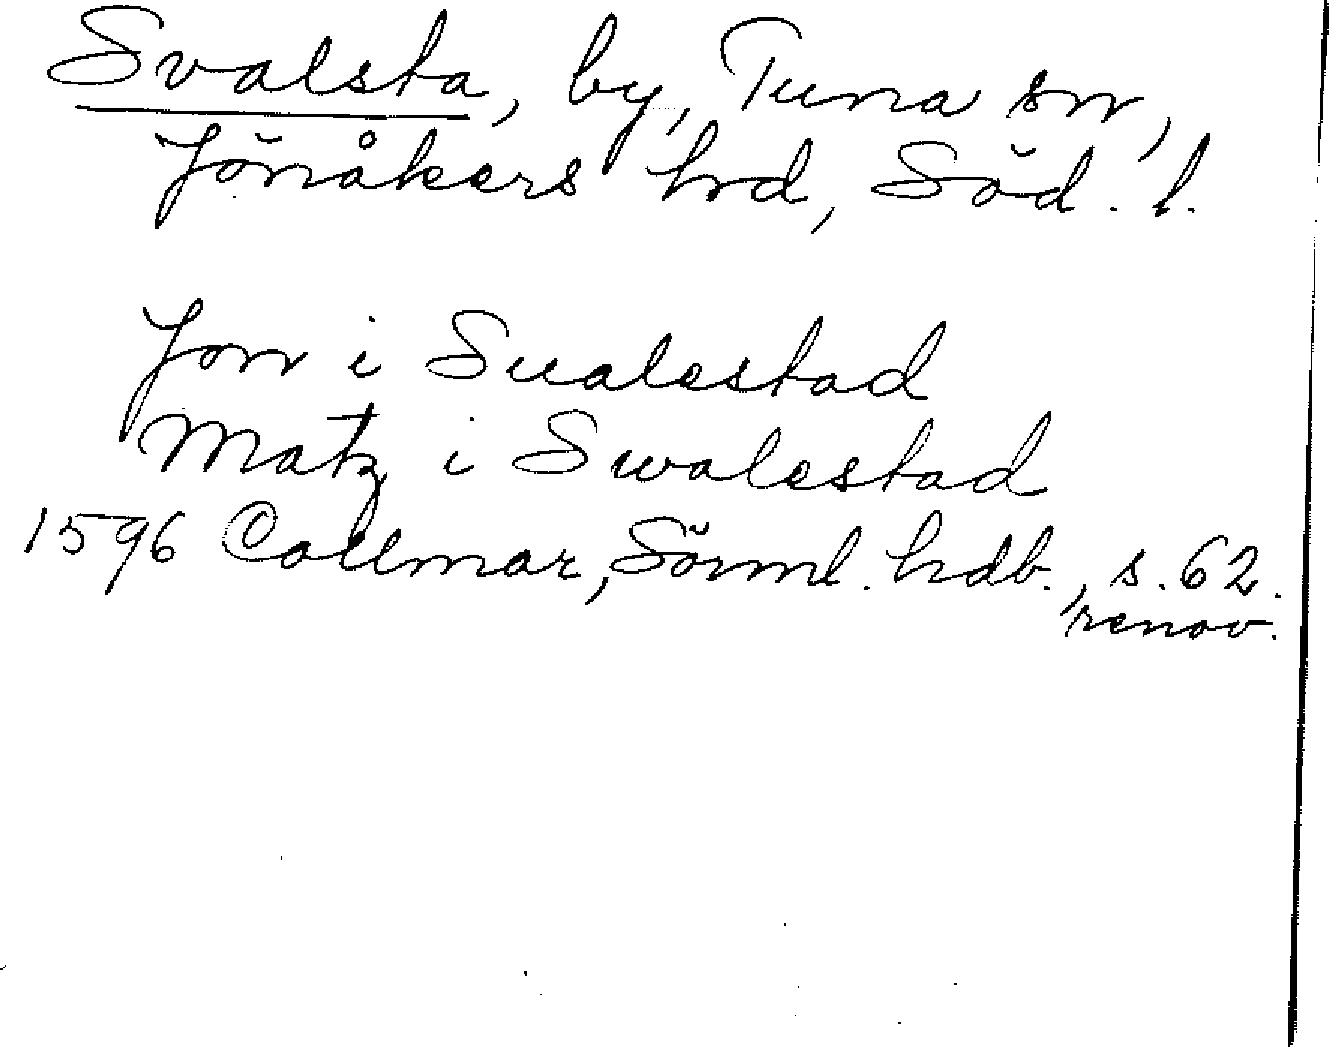 Svalsta, by, Tuna sn,
Jönåkers hrd, Söd. l.
Jon i Sualestad
Matz i Swalestad
1596 Collmar, Sörml. hdb., s. 62.
renov.